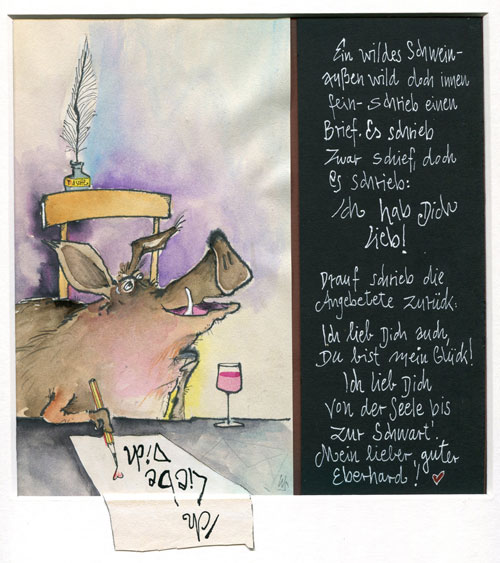 Ein wildes Schwein-
außen wild doch innen
fein- schrieb einen
Brief. Es schrieb
zwar schief, doch
es schrieb:
Ich hab Dich
lieb!
Drauf schrieb die
Angebetete zurück:
Ich lieb Dich auch,
Du bist mein Glück!
Ich lieb Dich
von der Seele bis
zur Schwart'
Mein lieber, guter
Eberhard!
Ich
Liebe
Dich